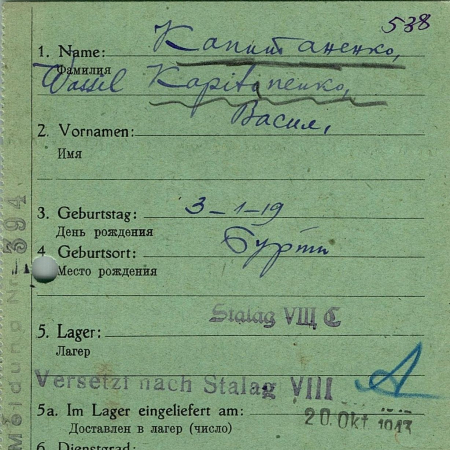 538
1. Name: Капитаненко,
Фамилия
Vassel Kapitanenko,
2. Vornamen: Васил,
Имя
3. Geburtstag: 3-1-19
День рождения
4. Geburtsort: Бурти
Место рождения
Stalag VIII C
5. Lager:
Лагер
Versetzt nach Stalag VIII A
5a. Im Lager eingeliefert am: 20. Okt. 1943
Доставлен в лагер (число)
6. Dienstgrad:
Meldung Nr. 394